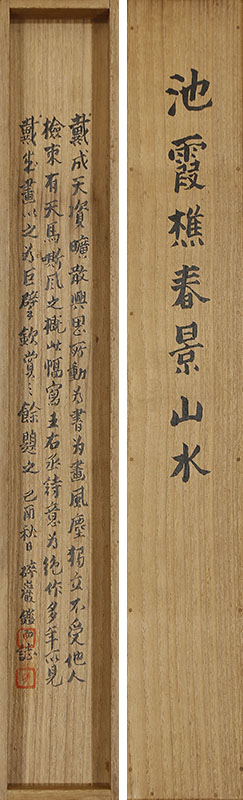 池霞樵春景山水
戴成天資曠散興思所動為書為畫風塵獨立不受他人
檢束有天馬嘶風之概此幅寫王右丞詩意為絶作多年所見
戴成畫以之為巨擘欽賞之餘題之 己酉秋日 碎巖鑑而誌